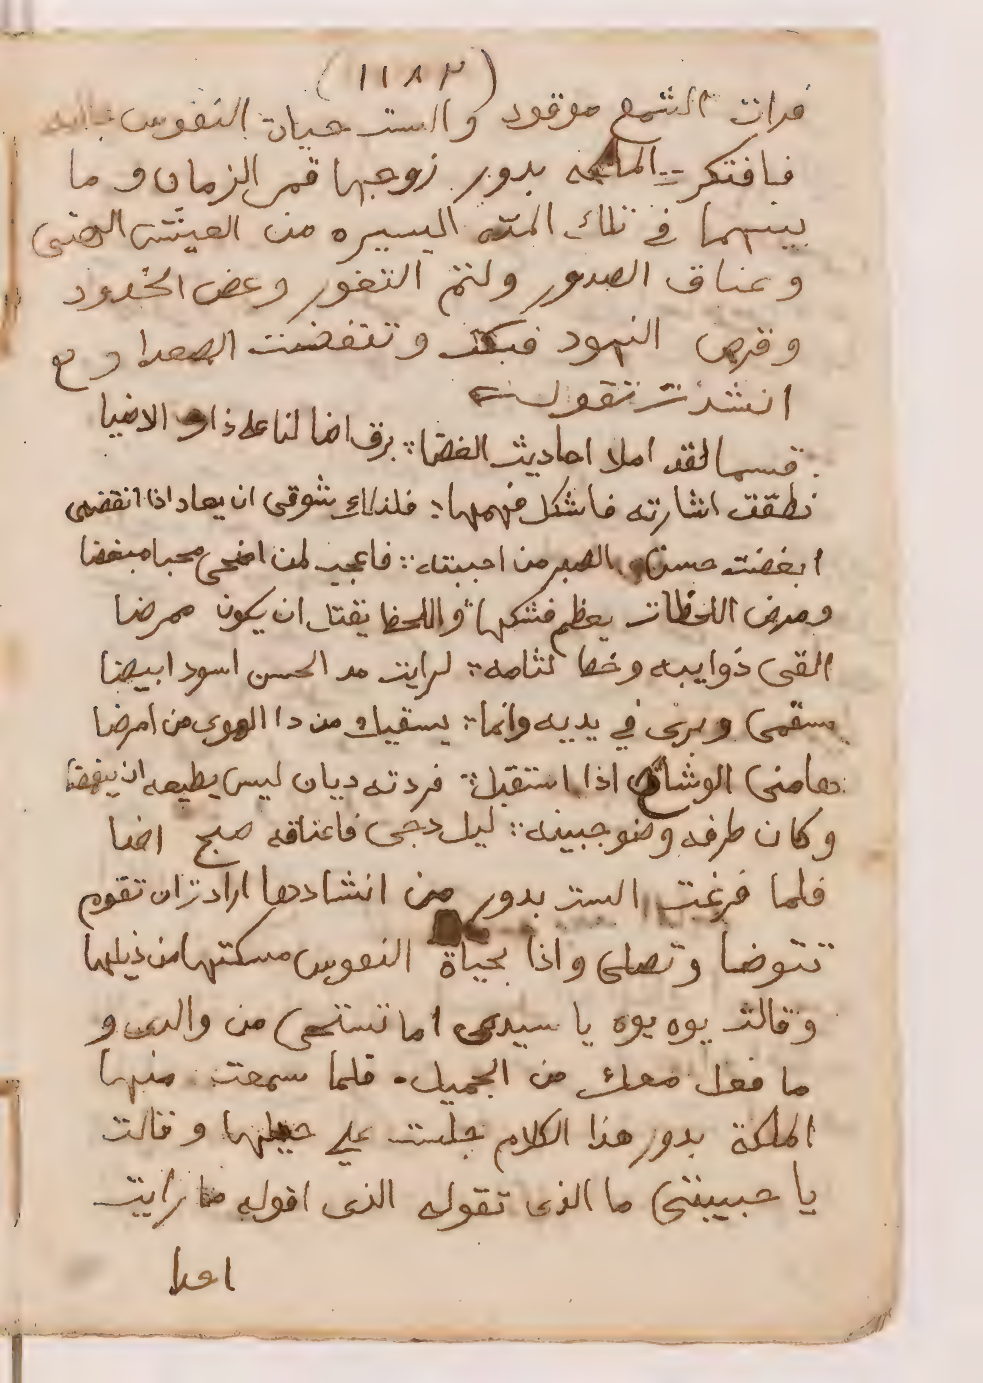 (١١٨٣)
فرات الشمع موقود والست حياة النفوس جالسه
فافتكرت الملكه بدور زوجها قمر الزمان و ما
بينهما في تلك المده اليسيره من العيش الهني
و عناق الصدور ولثم الثغور وعض الخدود
و قرص النهود فبكت و تنفضت الصعدا و
انشدت تقول
قسما لقد املا احاديث الغضا : برق اضا لنا على ذاك الاضيا
نطقت اشارته فاشكل فهمها : فلذلك شوقي ان يعاد اذا انقضى
ابغضت حسن الصبر من احببته : فاعجب لمن اضحى محبا مبغضا
و مرض اللحظات يعظم فتكها : و اللحظ يقتل ان يكون ممرضا
القى ذوايبه و حط لثامه : لرايت مد الحسن اسود ابيضا
سقمي و برى في يديه وانما : يسقيك من دا الهوى من امرضا
هامني الوشاح اذا استقبل : فردته ديان ليس يطيعه ان ينهضا
و كان طرفه و ضو جبينه : ليل دجى فاعناقه صبح اضا
فلما فرغت الست بدور من انشادها ارادت ان تقوم
تتوضا و تصلى و اذا بحياة النفوس مسكتها من ذيلها
و قالت يوه يوه يا سيدي اما تستحي من والدي و
ما فعل معك من الجميل . فلما سمعت منها
الملكة بدور هذا الكلام جلست على حيلها و قالت
يا حبيبتي ما الذى تقوله الذى اقوله ما رايت
احدا